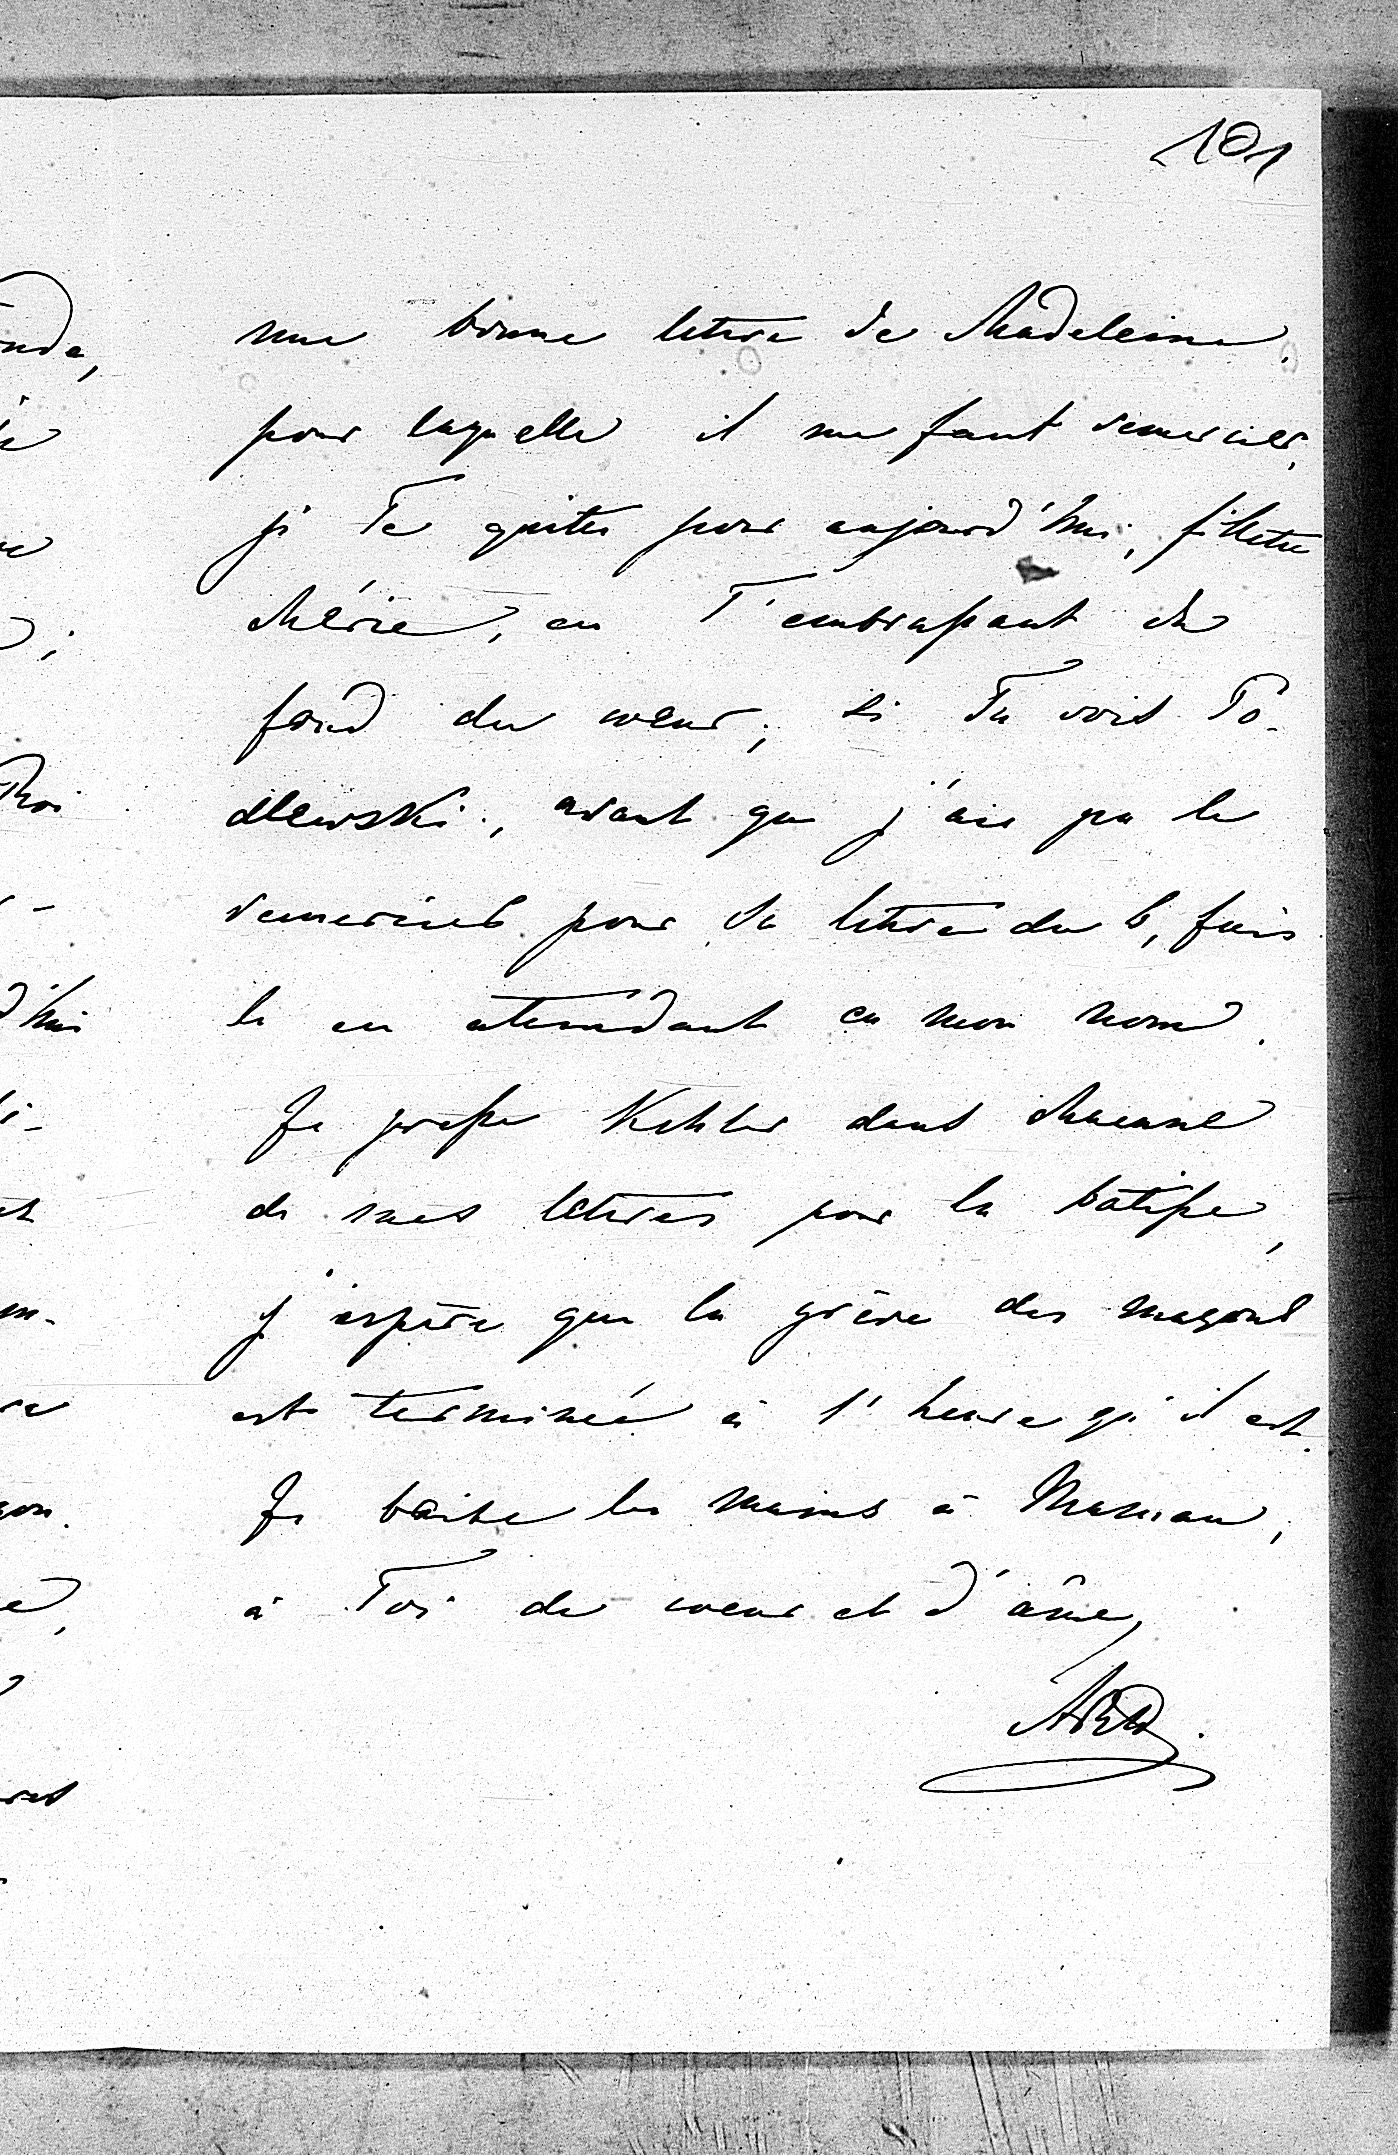 101
une bonne lettre de Madeleine.
pour laquelle il me faut remercier,
je Te quitte pour aujourd'hui, fillette
chérie, en T'embrassant du
fond du cœur; si Tu vois Po-
dlewski, avant que j'aie pu le
remercier pour sa lettre du 6, fais
le en attendant en mon nom.
Je presse Kehler dans chacune
de mes lettres pour la bâtisse,
j'espère que la grève des maçons
est terminée à l'heure qu'il est.
Je baise les mains à Maman,
à Toi de cœur et d'âme,